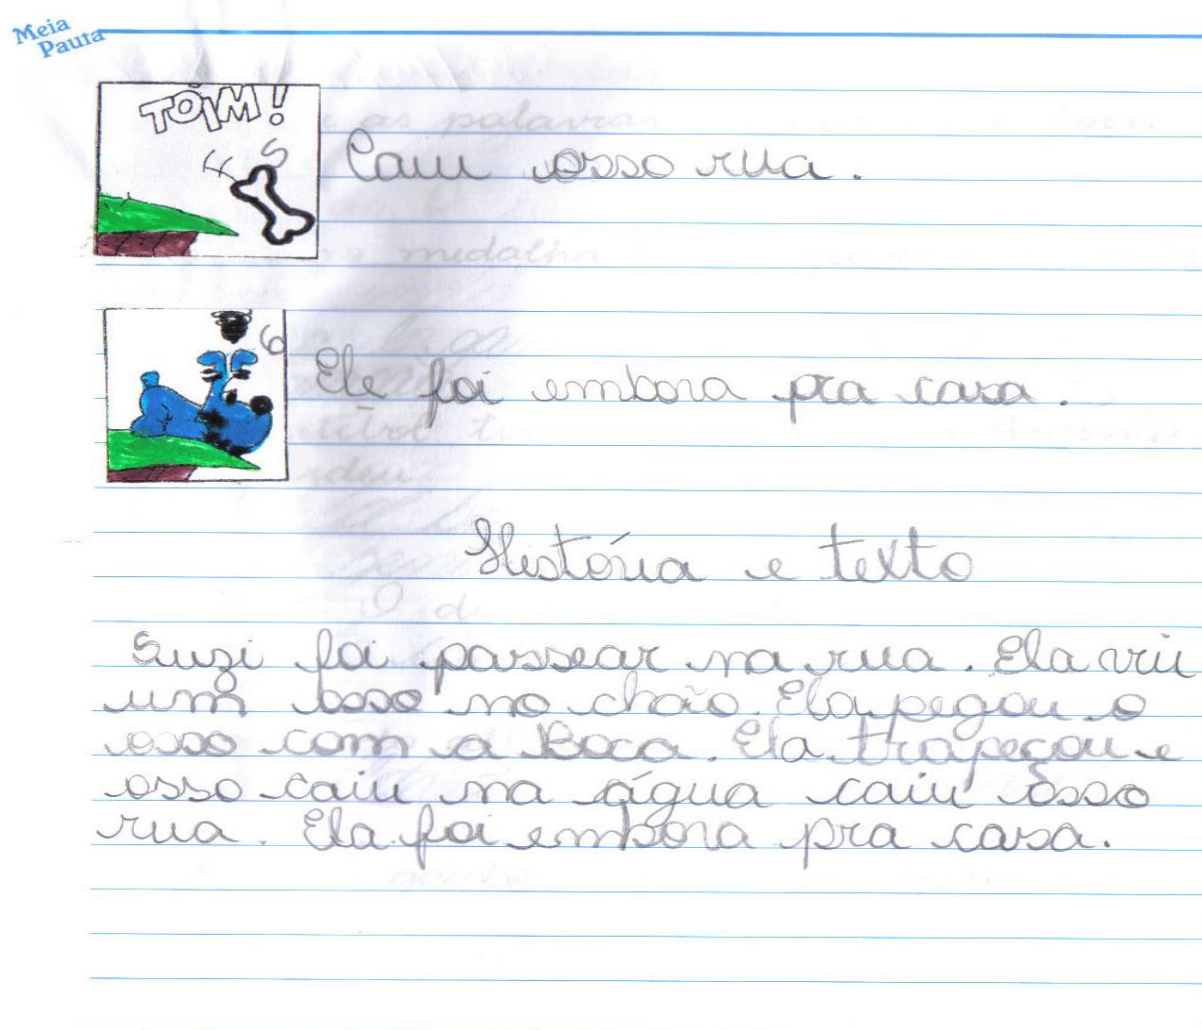 Meia
Pauta
TÓIM!
5
Caiu osso rua.
6
Ele foi embora pra casa.
História e texto
Suzi foi passear na rua. Ela viu
um osso no chão. Ela pegou o
osso com a Boca. Ela trapeçou e
osso caiu na água caiu osso
rua. Ela foi embora pra casa.